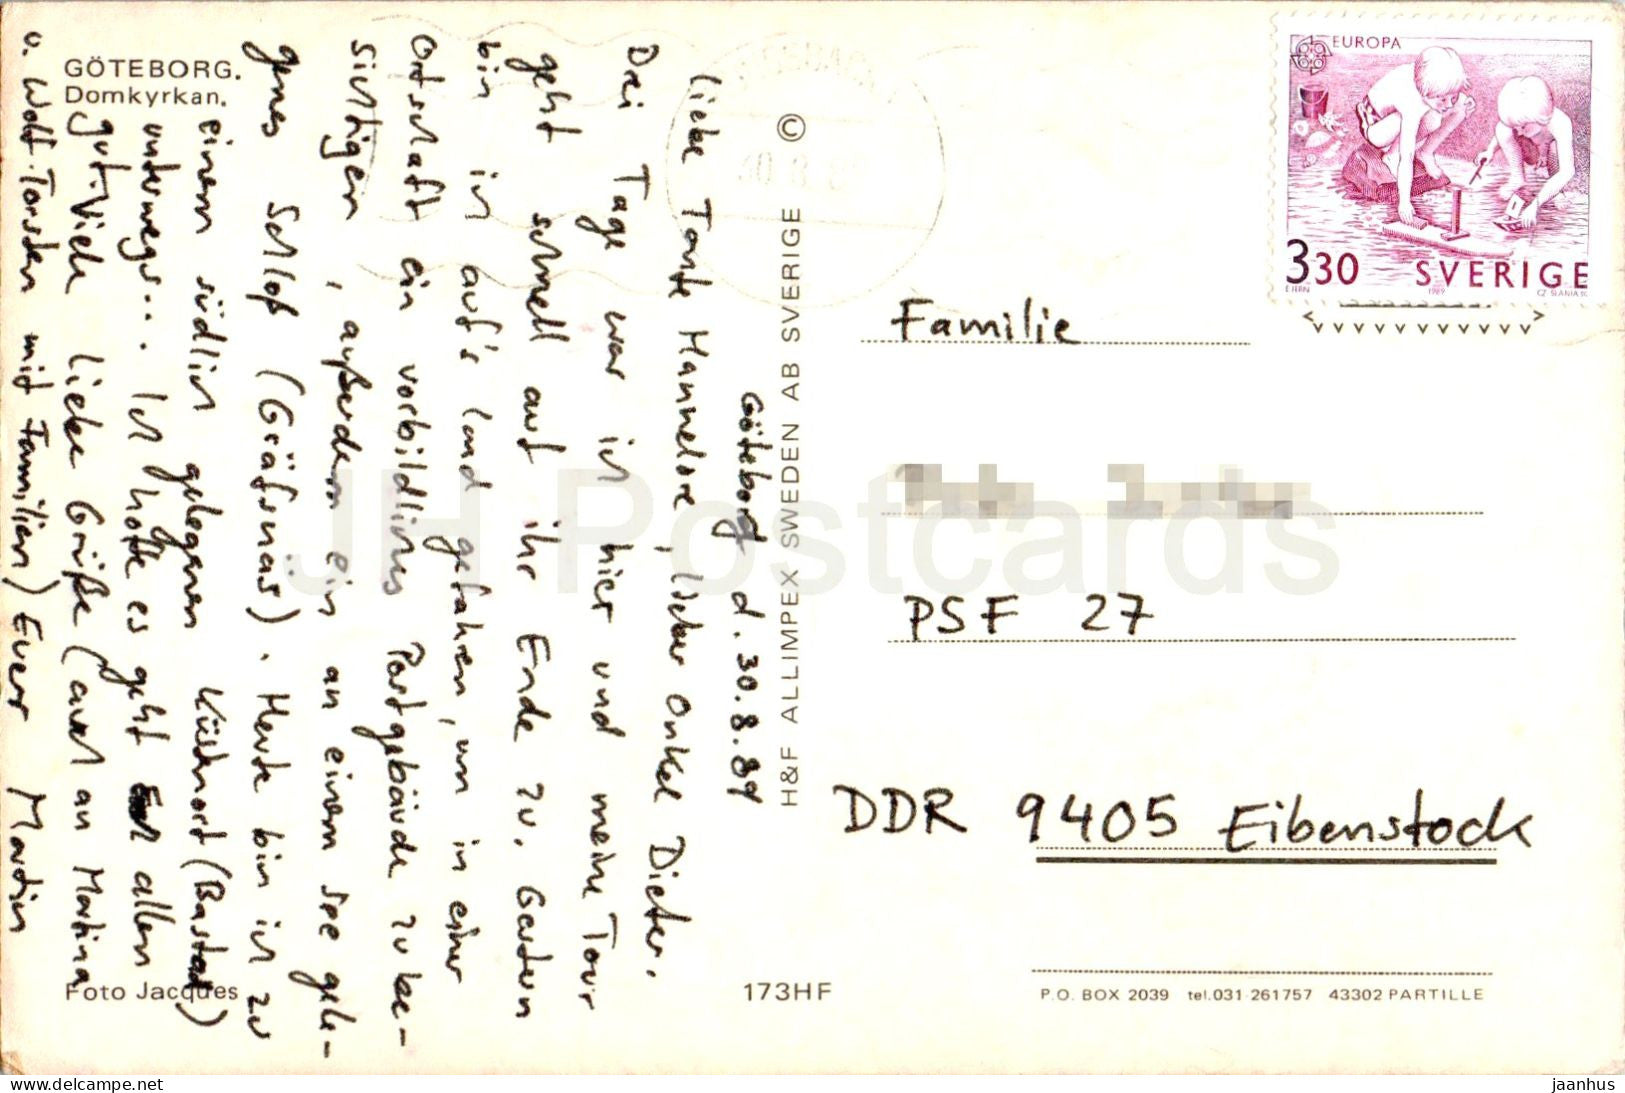 GÖTEBORG.
Domkyrkan.
Göteborg d. 30.8.89
Liebe Tante Hannelore, lieber Onkel Dieter.
Drei Tage war ich hier und meine Tour
geht schnell auf ihr Ende zu. Gestern
bin ich auf's Land gefahren, um in einer
Ortschaft ein vorbildliches Postgebäude zu be-
sichtigen, außerdem ein an einem See gele-
genes Schloß (Gräfsnäs). Heute bin ich zu
einem südlich gelegenen Küstnort (Bastad)
unterwegs... Ich hoffe es geht allen
gut. Viele liebe Grüße (auch an Martina
u. Wolf-Torsten mit Familien) Euer Martin
Foto Jacques
H&F ALLIMPEX SWEDEN AB SVERIGE ©
173HF
EUROPA
3 30 SVERIGE
1989
CZ SLANIA SC
30 8
Familie
PSF 27
DDR 9405 Eibenstock
P.O. BOX 2039 tel.031-261757 43302 PARTILLE
JH Postcards
delcampe.net
jaanhus